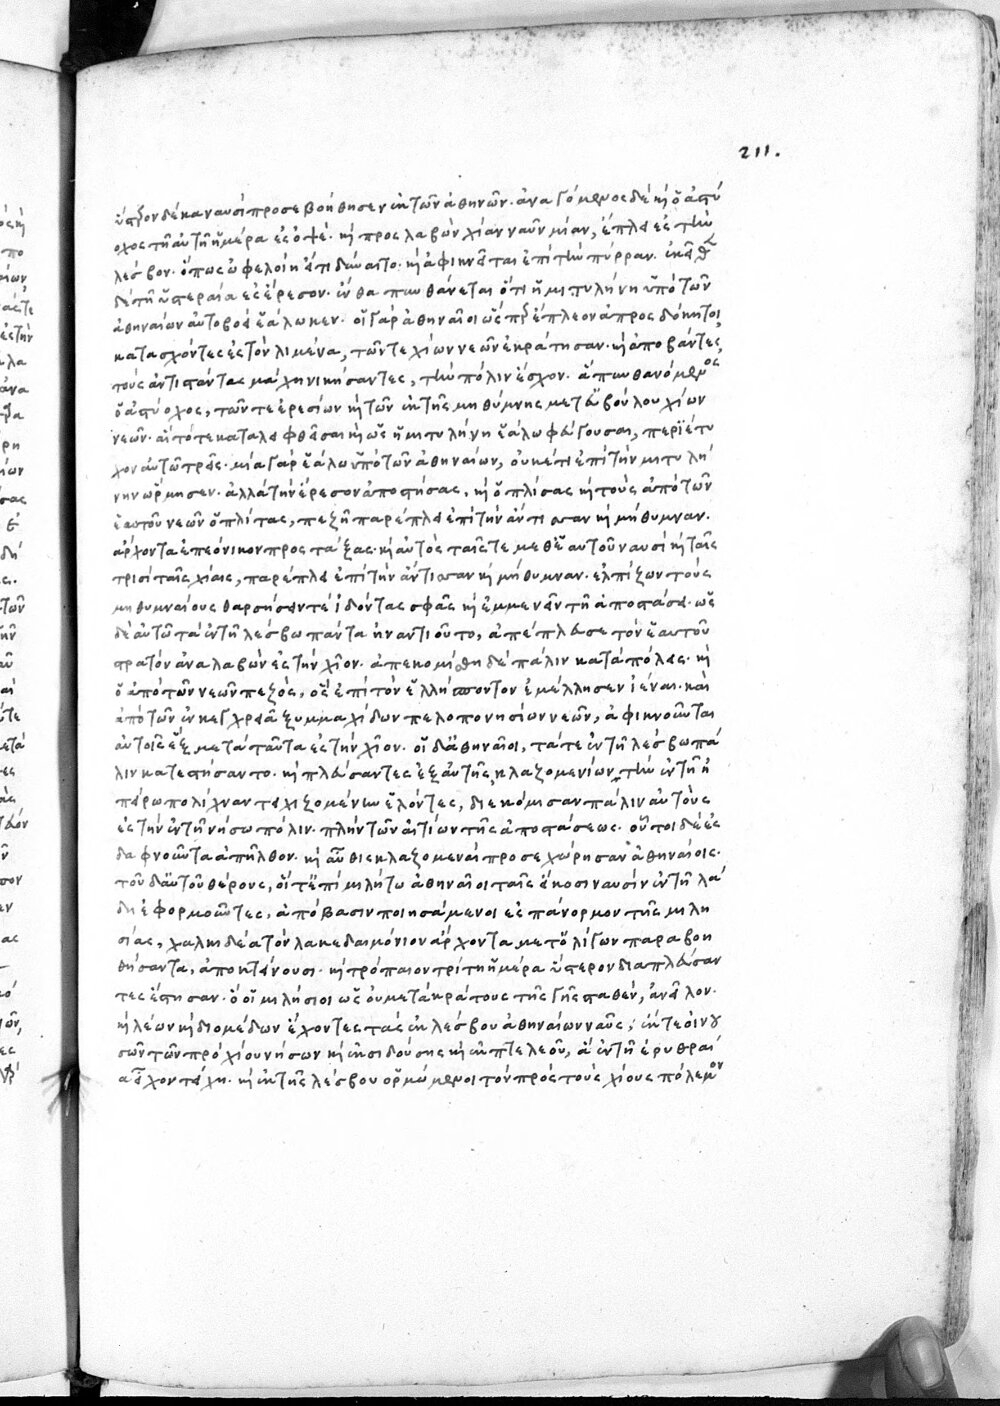 211.
ὕστερον δέκα ναυσὶ προσεβοήθησεν ἐκ τῶν ἀθηνῶν. ἀναγόμενος δὲ καὶ ὁ ἀστύ
οχος τῇ αὐτῇ ἡμέρα ἐς ὀψέ. καὶ προσλαβὼν χίαν ναῦν μίαν, ἔπλει ἐς τὴν
λέσβον. ὅπως ὠφελοίη εἴ τι δύναιτο. καὶ ἀφικνεῖται ἐπὶ τὴν πύρραν. ἐκεῖθεν
δὲ τῇ ὑστεραία ἐς ἔρεσον. ἔνθα πυνθάνεται ὅτι ἡ μιτυλήνη ὑπὸ τῶν
ἀθηναίων αὐτοβοεὶ ἑάλωκεν. οἱ γὰρ ἀθηναῖοι ὥσπερ ἔπλεον ἀπροσδόκητοι
κατασχόντες ἐς τὸν λιμένα, τῶν τε χίων νεῶν ἐκράτησαν. καὶ ἀποβάντες
τοὺς ἀντιστάντας μάχη νικήσαντες, τὴν πόλιν ἔσχον. ἃ πυνθανόμενος
ὁ ἀστύοχος, τῶν τε ἐρεσίων καὶ τῶν ἐκ τῆς μηθύμνης μετ' εὐβούλου χίων
νεῶν. αἳ τότε καταλειφθεῖσαι καὶ ὡς ἡ μιτυλήνη ἑάλω φεύγουσαι, περιέτυ
χον αὐτῷ τρεῖς. μία γὰρ ἑάλω ὑπὸ τῶν ἀθηναίων, οὐκέτι ἐπὶ τὴν μιτυλή
νην ὥρμησεν. ἀλλὰ τὴν ἔρεσον ἀποστήσας, καὶ ὁπλίσας καὶ τοὺς ἀπὸ τῶν
ἑαυτοῦ νεῶν ὁπλίτας, πεζῇ παρέπλει ἐπὶ τὴν ἄντισσαν καὶ μήθυμναν.
ἄρχοντα ἐτεόνικον προστάξας. καὶ αὐτὸς ταῖς τε μεθ' ἑαυτοῦ ναυσὶ καὶ ταῖς
τρισὶ ταῖς χίαις, παρέπλει ἐπὶ τὴν ἄντισσαν καὶ μήθυμναν. ἐλπίζων τοὺς
μηθυμναίους θαρσήσειν τε ἰδόντας σφᾶς καὶ ἐμμενεῖν τῇ ἀποστάσει. ὡς
δὲ αὐτῷ τὰ ἐν τῇ λέσβω πάντα ἠναντιοῦτο, ἀπέπλευσε τὸν ἑαυτοῦ
στρατὸν ἀναλαβὼν ἐς τὴν χῖον. ἀπεκομίσθη δὲ πάλιν κατὰ πόλεις. καὶ
ὁ ἀπὸ τῶν νεῶν πεζὸς, ὃς ἐπὶ τὸν ἑλλήσποντον ἐμέλλησεν ἰέναι. καὶ
ἀπὸ τῶν ἐν κεγχρειᾶ ξυμμαχίδων πελοπονησίων νεῶν, ἀφικνοῦνται
αὐτοῖς ἓξ μετὰ ταῦτα ἐς τὴν χῖον. οἱ δὲ ἀθηναῖοι, τά τε ἐν τῇ λέσβω πά
λιν κατεστήσαντο. καὶ πλεύσαντες ἐξ αὐτῆς κλαζομενίων τὴν ἐν τῇ ἠ
πείρω πολίχναν τειχιζομένην ἑλόντες, διεκόμισαν πάλιν αὐτοὺς
ἐς τὴν ἐν τῇ νήσω πόλιν. πλὴν τῶν αἰτίων τῆς ἀποστάσεως. οὗτοι δὲ ἐς
δαφνοῦντα ἀπῆλθον. καὶ αὖθις κλαζομεναὶ προσεχώρησαν ἀθηναίοις.
τοῦ δ' αὐτοῦ θέρους, οἵ τ' ἐπὶ μιλήτω ἀθηναῖοι ταῖς εἴκοσι ναυσὶν ἐν τῇ λά
δη ἐφορμοῦντες, ἀπόβασιν ποιησάμενοι ἐς πάνορμον τῆς μιλη
σίας, χαλκιδέα τὸν λακεδαιμόνιον ἄρχοντα μετ' ὀλίγων παραβοη
θήσαντα, ἀποκτείνουσι. καὶ τρόπαιον τρίτη ἡμέρα ὕστερον διαπλεύσαν
τες ἔστησαν. ὃ οἱ μιλήσιοι ὡς οὐ μετὰ κράτους τῆς γῆς σταθὲν, ἀνεῖλον.
καὶ λέων καὶ διομέδων ἔχοντες τὰς ἐκ λέσβου ἀθηναίων ναῦς, ἔκ τε οἰνου
σῶν τῶν πρὸ χίου νήσων καὶ ἐκ σιδούσης καὶ ἐκ πτελεοῦ, ἃ ἐν τῇ ἐρυθραί
α εἶχον τείχη. καὶ ἐκ τῆς λέσβου ὁρμώμενοι τὸν πρὸς τοὺς χίους πόλεμον